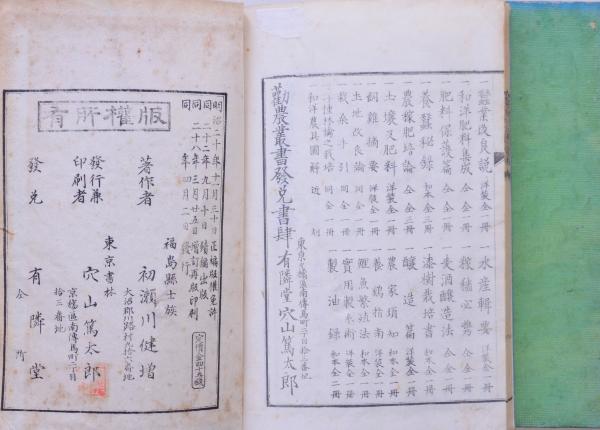 一蠶業改良説 洋裝全一冊
一和洋肥料集成 仝 全一冊
一肥料保護篇 仝 全一冊
一養蠶秘録 和本全三冊
一農稼肥培論 仝 全三冊
一土壤及肥料 洋裝全一冊
一飼雞摘要 洋假全一冊
一土地改良論 同全一冊
一栽桑手引 同全一冊
栽培 同全一冊
一和洋農具圖解 近刻
一水産輯要 洋裝全一冊
一麥酒釀造法 仝 全一冊
一漆樹栽培書 和本全一冊
一釀造篇 洋裝全一冊
一農家須知 和本全一冊
一養鷄指南 洋裝全一冊
一雞魚繁殖法 和本全一冊
一實用製氷術 洋裝全一冊
一製油録 和本全二冊
勸農叢書發兌書肆 東京京橋區南傳馬町二丁目拾三番地 有隣堂 穴山篤太郎
明治二十年十一月三十日正編版權免許
同二十二年九月十日續編出版
同二十八年三月廿五日增訂再版印刷
同年四月二日發行
定價金四十五錢
福島縣士族
著作者 初瀬川健增
大沼郡川路村九拾六番地
東京書林
發行兼印刷者 穴山篤太郎
京橋區南傳馬町二丁目拾三番地
發兌 有隣堂
仝所
版權所有